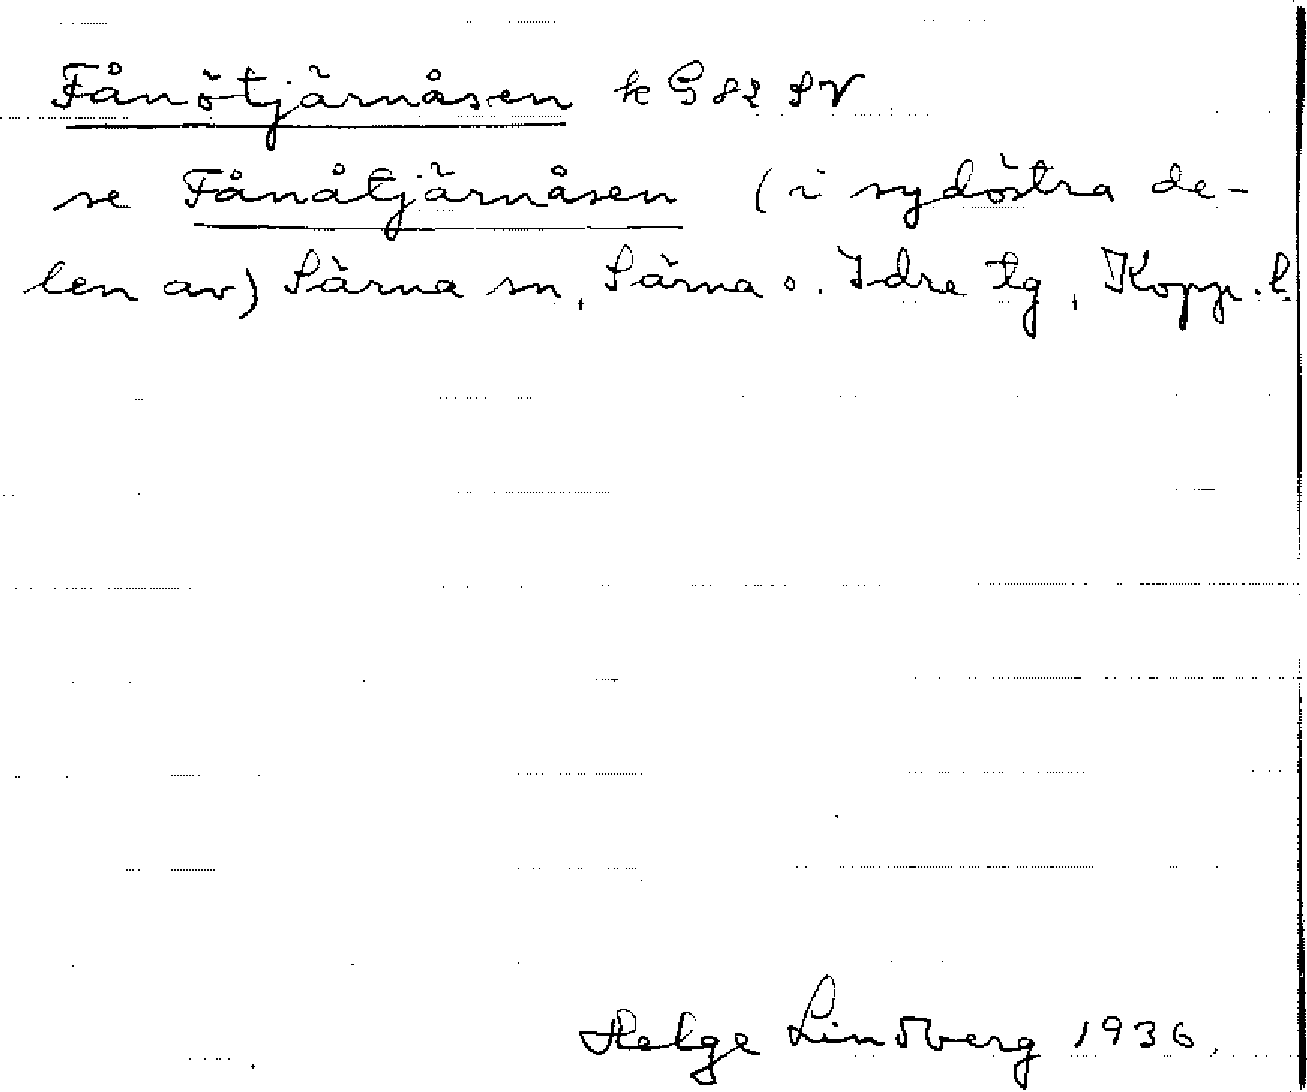 Fånötjärnåsen k G 82 SV
se Fånåtjärnåsen (i sydöstra de-
len av) Särna sn, Särna o. Idre tg, Kopp. l.
Helge Lindberg 1936.